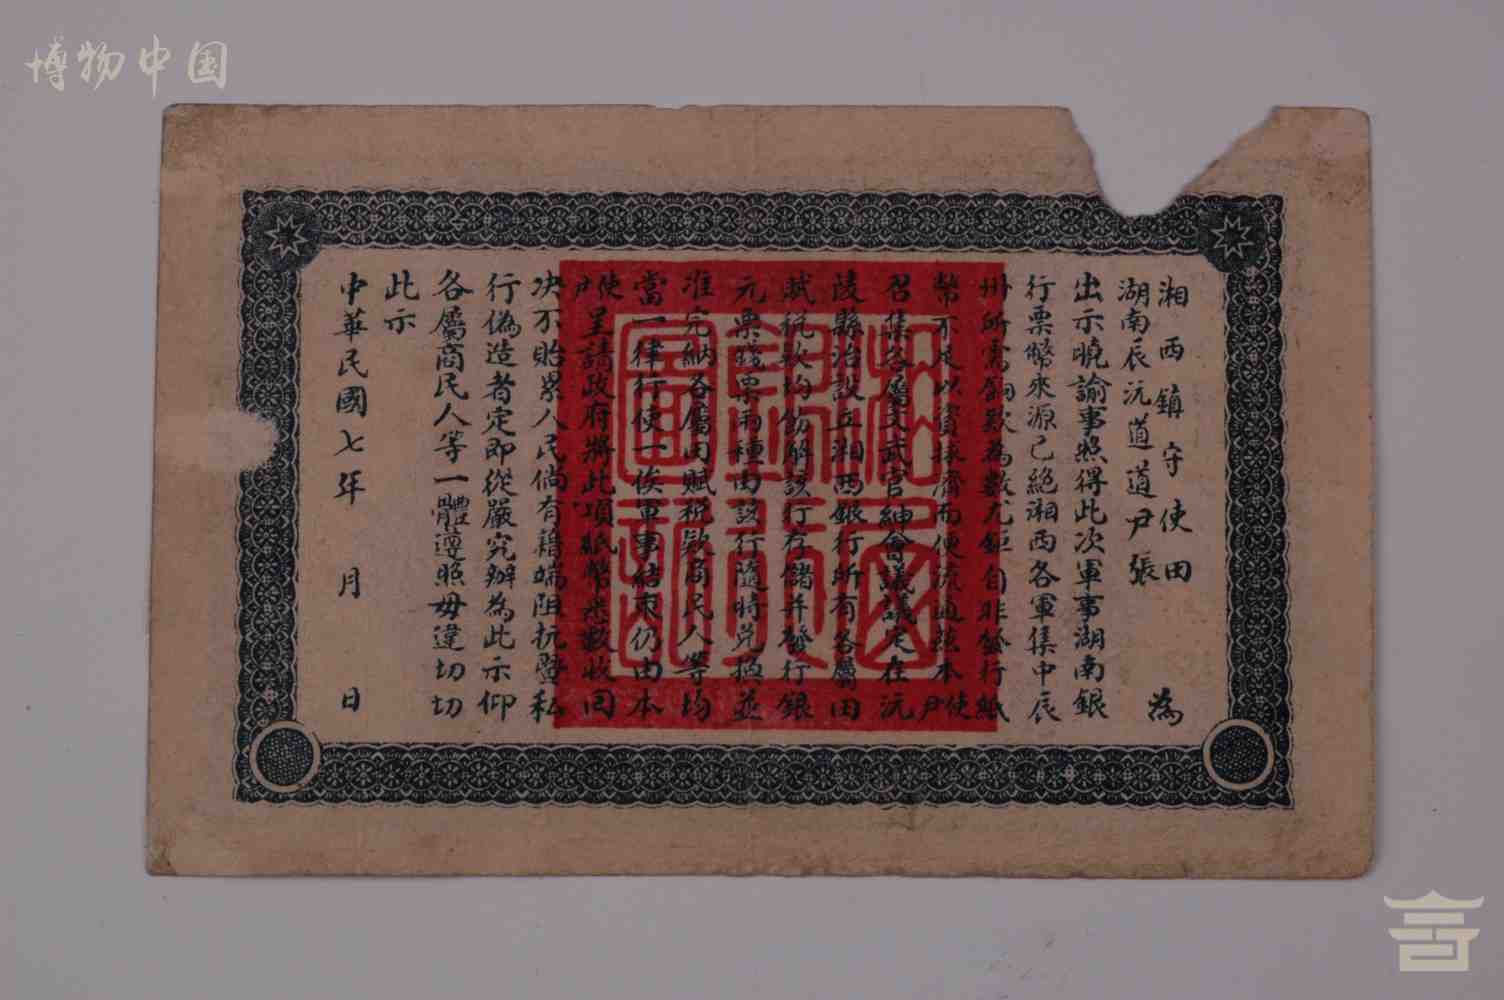 博物中国
湘西鎮守使田
湖南辰沅道道尹張
為
出示曉諭事照得此次軍事湖南銀
行票幣來源已絕湘西各軍集中辰
州所需餉款為數尤鉅自非發行紙
幣不足以資接濟而便流通茲本使尹
召集各屬文武官紳會議議定在沅
陵縣治設立湘西銀行所有各屬田
賦稅款均飭解該行存儲并發行銀
元票錢票兩種由該行隨時兌換並
准完納各屬田賦稅款商民人等均
當一律行使一俟軍事結束仍由本
使尹呈請政府將此項紙幣悉數收回
决不貽累人民倘有藉端阻抗暨私
行偽造者定即從嚴究辦為此示仰
各屬商民人等一體遵照毋違切切
此示
中華民國七年 月 日